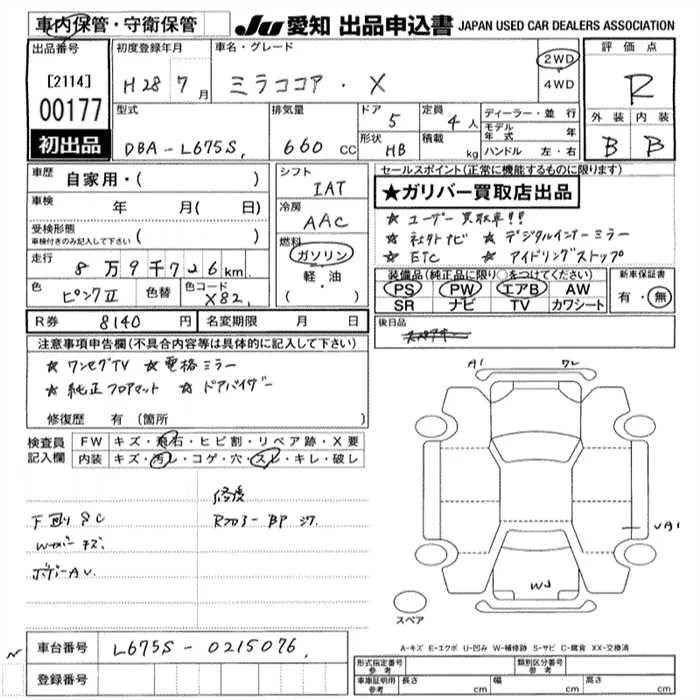 車内保管・守衛保管
JU 愛知 出品申込書 JAPAN USED CAR DEALERS ASSOCIATION
出品番号
[2114]
00177
初出品
初度登録年月
H28 7月
車名・グレード
ミラココア・X
2WD
4WD
評価点
R
外装 内装
B B
型式
DBA-L675S
排気量
660cc
ドア
5
定員
4人
形状
HB
積載
kg
ディーラー・並行
モデル年式 年
ハンドル 左・右
車歴
自家用・( )
車検
年 月( 日)
受検形態
車検付きのみ記入して下さい ( )
走行
8万9千726km
色
ピンクII
色替
色コード
X82
シフト
IAT
冷房
AAC
燃料
ガソリン
軽・油
( )
セールスポイント(正常に機能するものに限ります)
★ガリバー買取店出品
☆ ユーザー買取車!!
☆ 社外ナビ ☆ デジタルインナーミラー
☆ ETC ☆ アイドリングストップ
装備品(純正品に限り○をつけてください)
PS PW エアB AW
SR ナビ TV カワシート
新車保証書
有・無
R券 8140円 名変期限 月 日
後日品
注意事項申告欄(不具合内容等は具体的に記入して下さい)
☆ ワンセグTV ☆ 電格ミラー
☆ 純正フロアマット ☆ ドアバイザー
修復歴 有(箇所
検査員記入欄
FW キズ・飛石・ヒビ割・リペア跡・X要
内装 キズ・汚レ・コゲ・穴・スレ・キレ・破レ
下廻りSC
Wカバーキズ
ボデーAU
修復
Rフロアー BP
A1
WU
スペア
A-キズ E-エクボ U-凹み W-補修跡 S-サビ C-腐食 XX-交換済
車台番号 L675S-0215076
登録番号
形式指定番号 参考
類別区分番号 参考
車庫証明用 参考 長さ cm 幅 cm 高さ cm